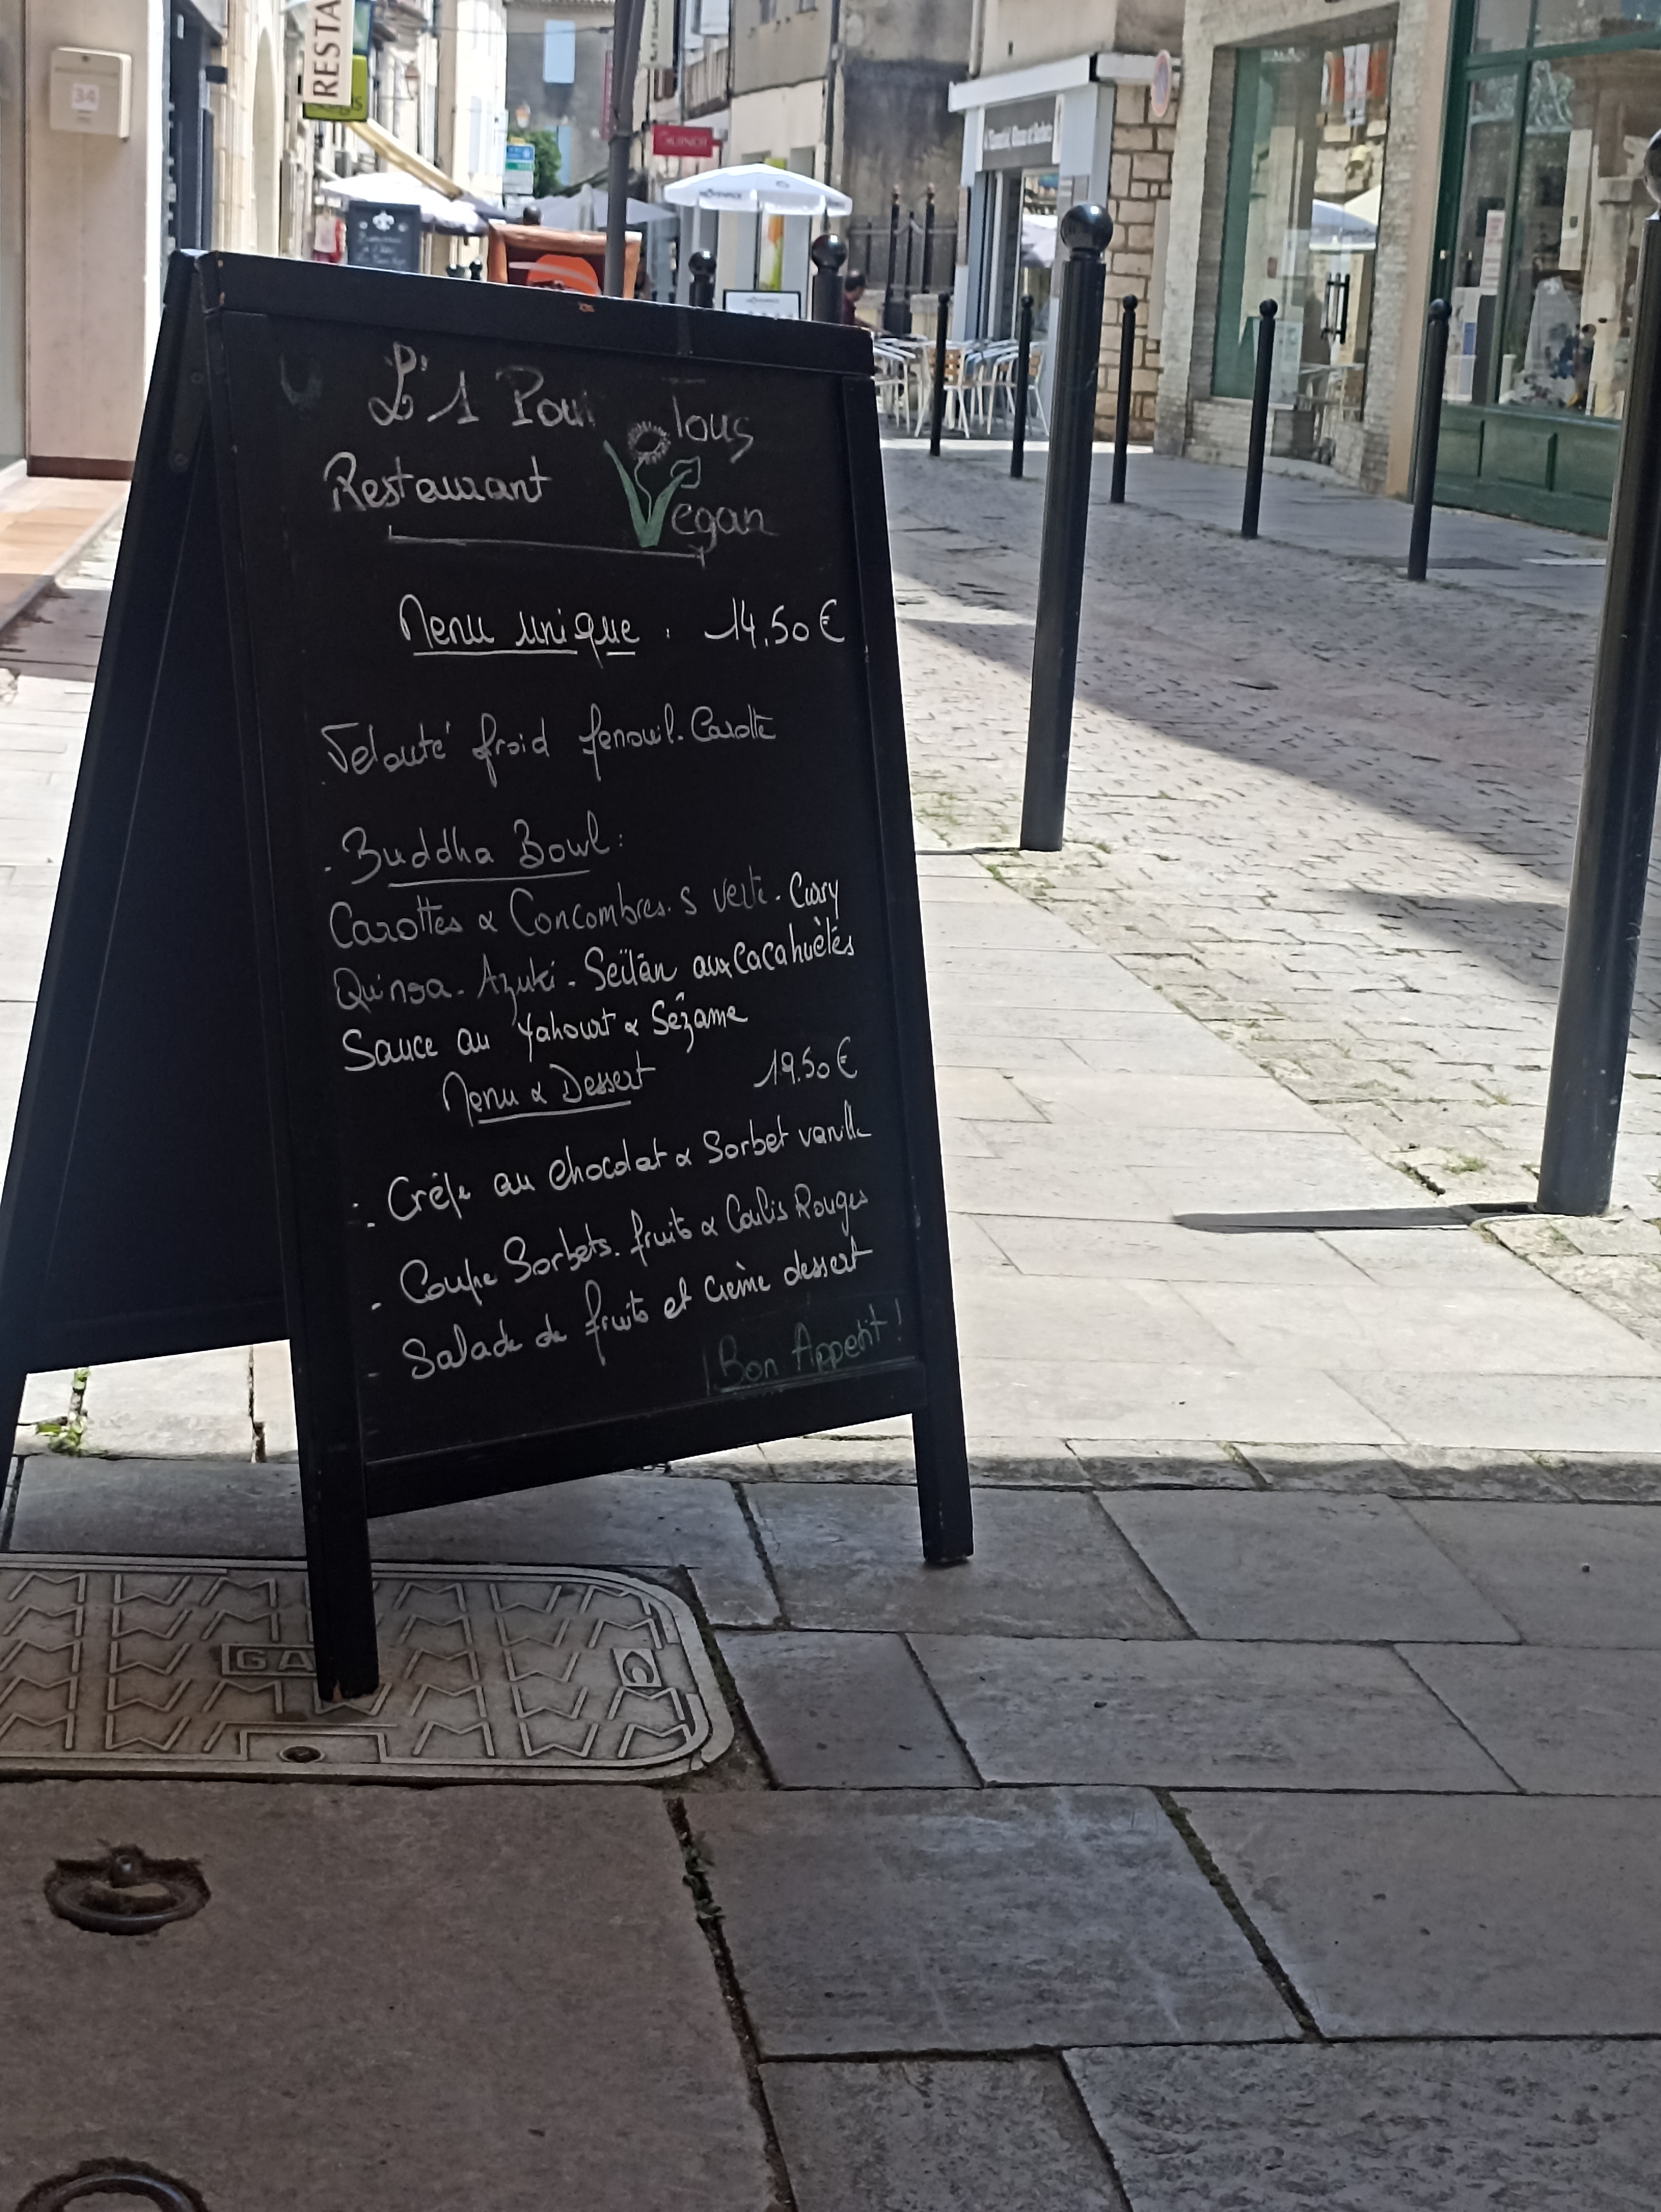 34
RESTA
GUINOT
MÖVENPICK
L'1 Pour Tous
Restaurant Vegan
Menu unique : 14.50€
Velouté froid fenouil. Carotte
- Buddha Bowl:
Carottes & Concombres. S verte. Curry
Quinoa. Azuki. Seïtan aux Cacahuètes
Sauce au Yahourt & Sézame
Menu & Dessert 19.50€
- Crêpe au chocolat & Sorbet vanille
- Coupe Sorbets. fruits & Coulis Rouges
- Salade de fruits et Crème dessert
! Bon Appetit !
GA
C